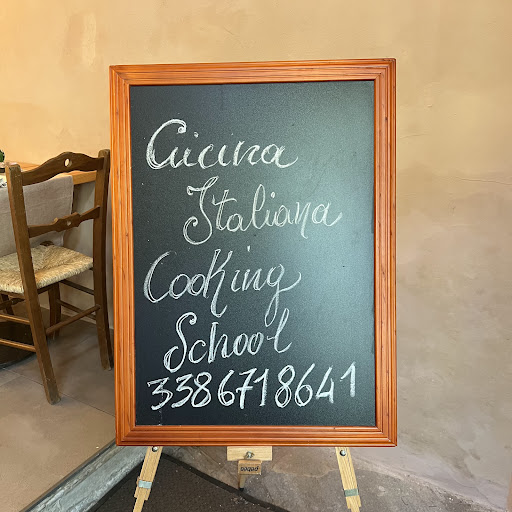 Cucina
Italiana
Cooking
School
3386718641